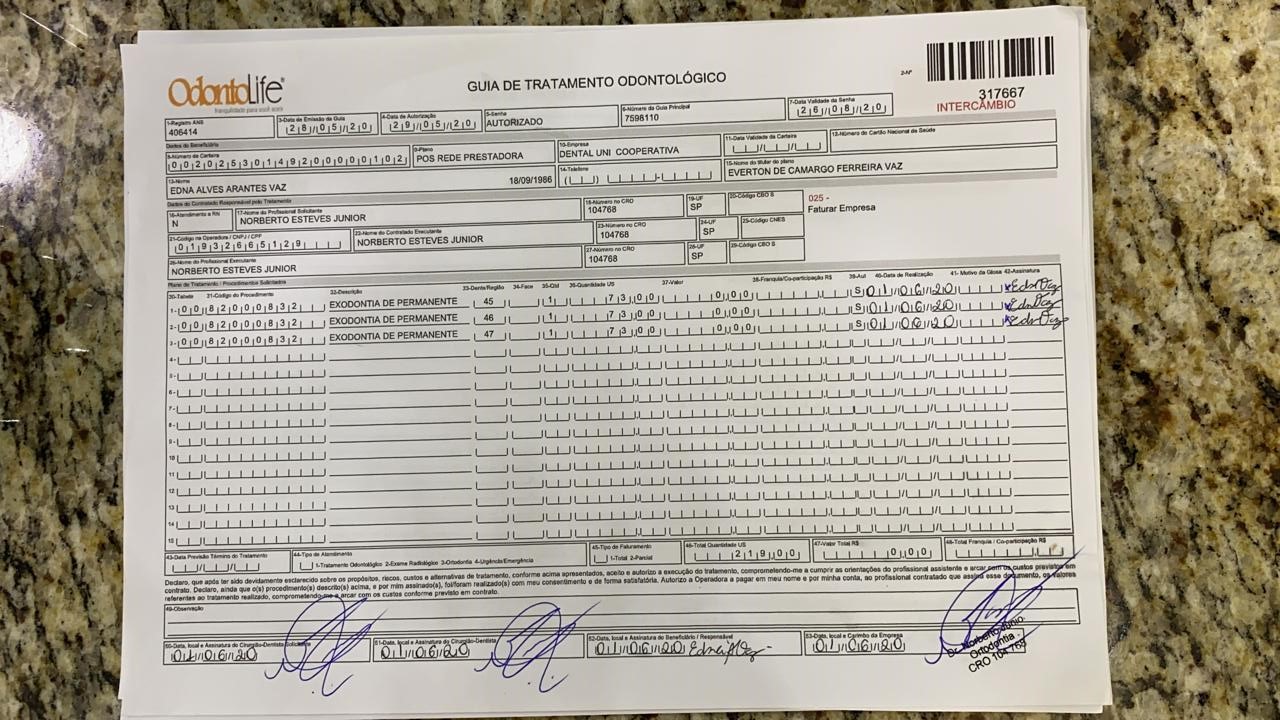 OdontoLife®
tranquilidade para você sorrir
GUIA DE TRATAMENTO ODONTOLÓGICO
2-Nº
317667
INTERCÂMBIO
1-Registro ANS
406414
3-Data de Emissão da Guia
28/05/20
4-Data de Autorização
29/05/20
5-Senha
AUTORIZADO
6-Número da Guia Principal
7598110
7-Data Validade da Senha
26/08/20
Dados do Beneficiário
8-Número da Carteira
00202530149200000102
9-Plano
POS REDE PRESTADORA
10-Empresa
DENTAL UNI COOPERATIVA
11-Data Validade da Carteira
12-Número do Cartão Nacional de Saúde
13-Nome
EDNA ALVES ARANTES VAZ
18/09/1986
14-Telefone
15-Nome do titular do plano
EVERTON DE CAMARGO FERREIRA VAZ
Dados do Contratado Responsável pelo Tratamento
16-Atendimento a RN
N
17-Nome do Profissional Solicitante
NORBERTO ESTEVES JUNIOR
18-Número no CRO
104768
19-UF
SP
20-Código CBO S
025 -
Faturar Empresa
21-Código na Operadora / CNPJ / CPF
01932665129
22-Nome do Contratado Executante
NORBERTO ESTEVES JUNIOR
23-Número no CRO
104768
24-UF
SP
25-Código CNES
26-Nome do Profissional Executante
NORBERTO ESTEVES JUNIOR
27-Número no CRO
104768
28-UF
SP
29-Código CBO S
Plano de Tratamento / Procedimentos Solicitados
30-Tabela 31-Código do Procedimento 32-Descrição 33-Dente/Região 34-Face 35-Qtd 36-Quantidade US 37-Valor 38-Franquia/Co-participação R$ 39-Aut 40-Data de Realização 41- Motivo da Glosa 42-Assinatura
1- 00 82000832 EXODONTIA DE PERMANENTE 45 1 73,00 0,00 S 01/06/20
2- 00 82000832 EXODONTIA DE PERMANENTE 46 1 73,00 0,00 S 01/06/20
3- 00 82000832 EXODONTIA DE PERMANENTE 47 1 73,00 0,00 S 01/06/20
4-
5-
6-
7-
8-
9-
10
11
12
13
14
15
43-Data Previsão Término do Tratamento
44-Tipo de Atendimento
1-Tratamento Odontológico 2-Exame Radiológico 3-Ortodontia 4-Urgência/Emergência
45-Tipo de Faturamento
1-Total 2-Parcial
46-Total Quantidade US
219,00
47-Valor Total R$
0,00
48-Total Franquia / Co-participação R$
Declaro, que após ter sido devidamente esclarecido sobre os propósitos, riscos, custos e alternativas de tratamento, conforme acima apresentados, aceito e autorizo a execução do tratamento, comprometendo-me a cumprir as orientações do profissional assistente e arcar com os custos previstos em
contrato. Declaro, ainda que o(s) procedimento(s) descrito(s) acima, e por mim assinado(s), foi/foram realizado(s) com meu consentimento e de forma satisfatória. Autorizo a Operadora a pagar em meu nome e por minha conta, ao profissional contratado que assina esse documento, os valores
referentes ao tratamento realizado, comprometendo-me a arcar com os custos conforme previsto em contrato.
49-Observação
50-Data, local e Assinatura do Cirurgião-Dentista Solicitante
01/06/20
51-Data, local e Assinatura do Cirurgião-Dentista
01/06/20
52-Data, local e Assinatura do Beneficiário / Responsável
01/06/20
53-Data, local e Carimbo da Empresa
01/06/20
Dr. Norberto Junio.
Ortodontia
CRO 104 768